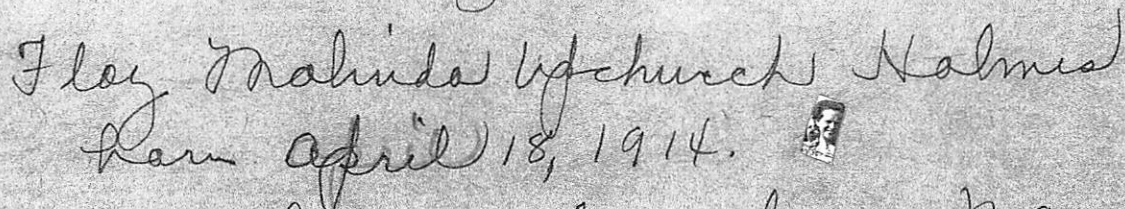 Floy Malinda Upchurch Holmes
born April 18, 1914.